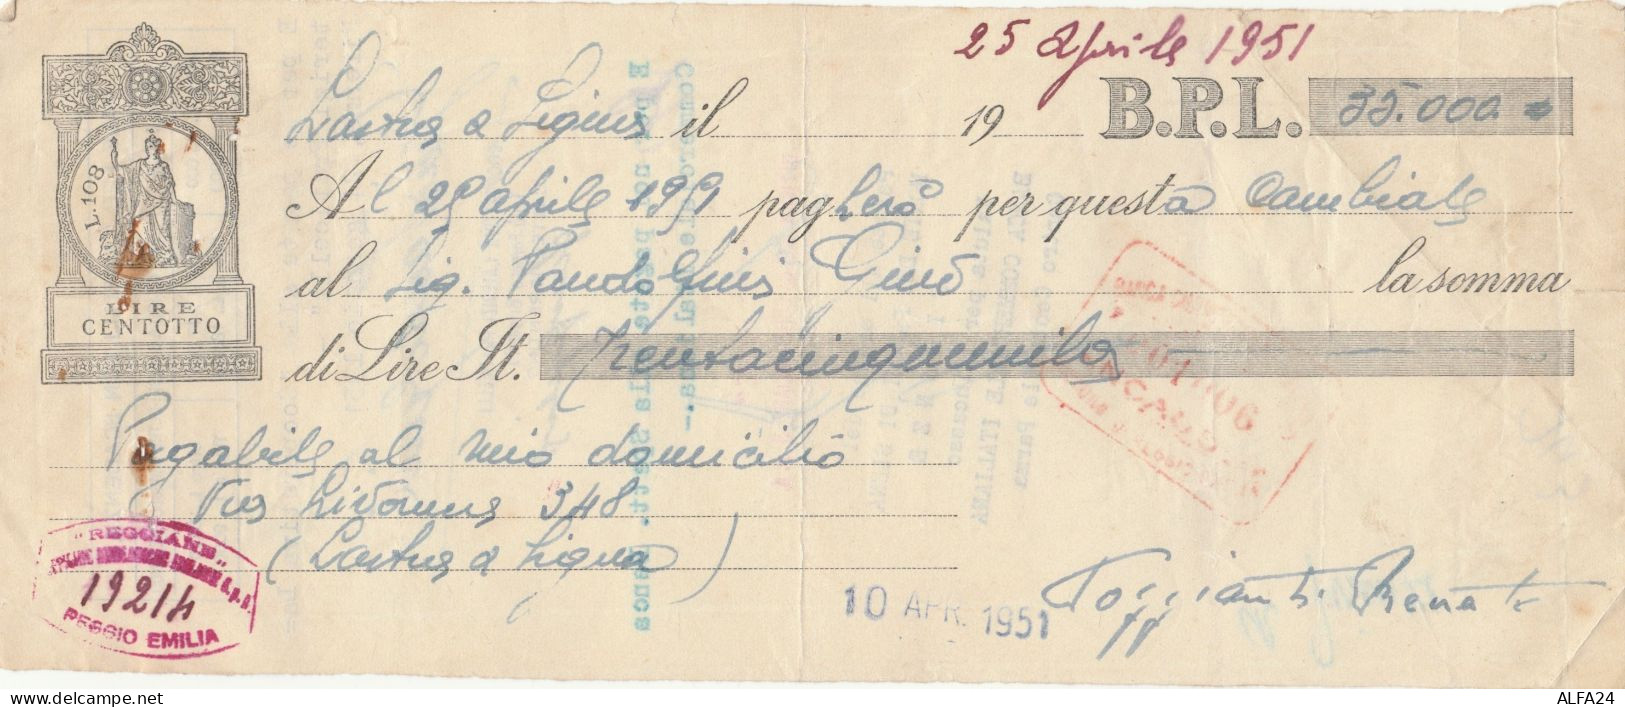 25 Aprile 1951
Lastra a Signa il 19 B.P.L. 35.000=
L.108
Al 25 aprile 1951 pagherò per questa Cambiale
al Sig. Pandolfini Gino la somma
LIRE
CENTOTTO
di Lire It. Trentacinquemila
Pagabile al mio domicilio
Via Livornese 348
(Lastra a Signa)
"REGGIANE"
S.p.A.
19214
REGGIO EMILIA
10 APR. 1951
Renato
delcampe.net
ALFA24